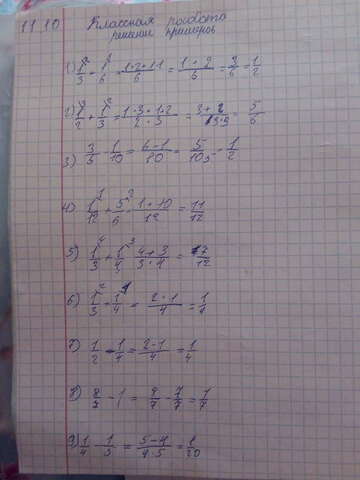 11.10 Классная работа
решение примеров
1) 1/3 + 1/6 = 1·2+1·1/6 = 1+2/6 = 3/6 = 1/2
2) 1/2 + 1/3 = 1·3+1·2/2·3 = 3+2/ = 5/6
3) 3/5 - 1/10 = 6-1/10 = 5/10 = 1/2
4) 1/12 + 5/6 = 1+10/12 = 11/12
5) 1/3 + 1/4 = 4+3/3·4 = 7/12
6) 1/3 - 1/4 = 2-1/4 = 1/4
7) 1/2 - 1/4 = 2-1/4 = 1/4
8) 8/7 - 1 = 8/7 - 7/7 = 1/7
9) 1/4 - 1/5 = 5-4/4·5 = 1/20